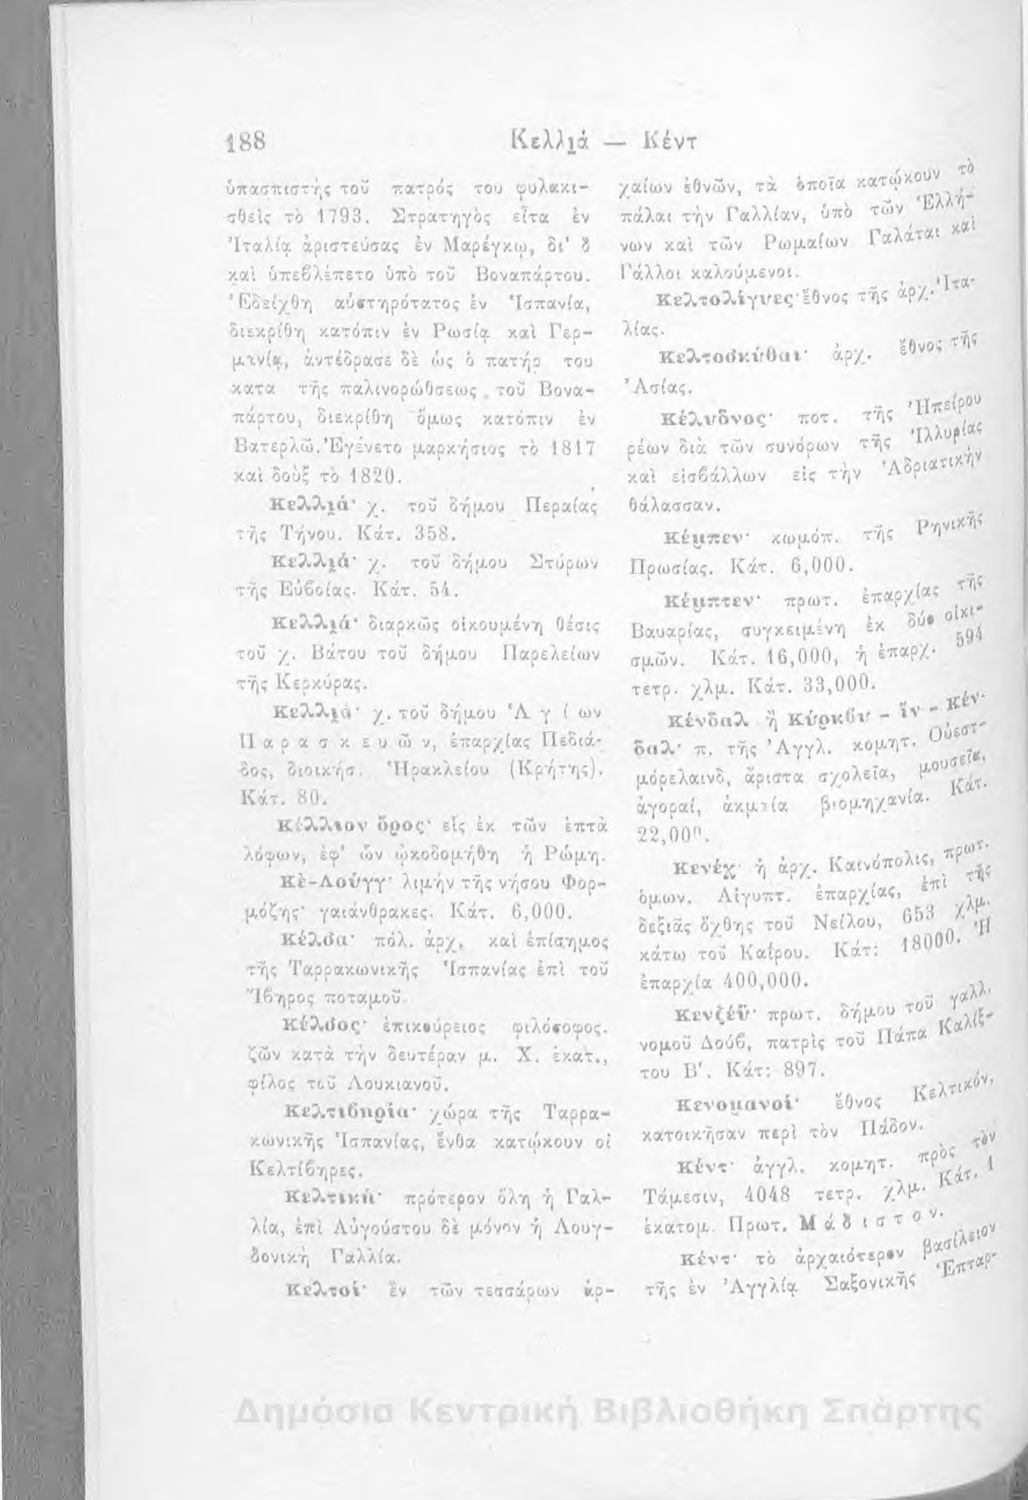 188
Κελλιά — Κέντ
ὑπασπιστὴς τοῦ πατρός του φυλακι-
σθεὶς τὸ 1793. Στρατηγὸς εἶτα ἐν
Ἰταλίᾳ ἀριστεύσας ἐν Μαρέγκῳ, δι' ὃ
καὶ ὑπεβλέπετο ὑπὸ τοῦ Βοναπάρτου.
Ἐδείχθη αὐστηρότατος ἐν Ἱσπανίᾳ,
διεκρίθη κατόπιν ἐν Ρωσίᾳ καὶ Γερ-
μανίᾳ, ἀντέδρασε δὲ ὡς ὁ πατήρ του
κατὰ τῆς παλινορώθσεως τοῦ Βονα-
πάρτου, διεκρίθη ὅμως κατόπιν ἐν
Βατερλώ. Ἐγένετο μαρκήσιος τὸ 1817
καὶ δοὺξ τὸ 1820.
Κελλιά· χ. τοῦ δήμου Περαίας
τῆς Τήνου. Κάτ. 358.
Κελλιά· χ. τοῦ δήμου Στύρων
τῆς Εὐβοίας. Κάτ. 54.
Κελλιά· διαρκῶς οἰκουμένη θέσις
τοῦ χ. Βάτου τοῦ δήμου Παρελείων
τῆς Κερκύρας.
Κελλιά· χ. τοῦ δήμου Ἁγίων
Παρασκευῶν, ἐπαρχίας Πεδιά-
δος, διοικήσ. Ἡρακλείου (Κρήτης).
Κάτ. 80.
Κέλλιον ὄρος· εἷς ἐκ τῶν ἑπτὰ
λόφων, ἐφ' ὧν ᾠκοδομήθη ἡ Ρώμη.
Κὲ-Λούγγ· λιμὴν τῆς νήσου Φορ-
μόζης· γαιάνθρακες. Κάτ. 6,000.
Κέλσα· πόλ. ἀρχ. καὶ ἐπίσημος
τῆς Ταρρακωνικῆς Ἱσπανίας ἐπὶ τοῦ
Ἴβηρος ποταμοῦ.
Κέλσος· ἐπικούρειος φιλόσοφος.
ζῶν κατὰ τὴν δευτέραν μ. Χ. ἑκατ.,
φίλος τοῦ Λουκιανοῦ.
Κελτιβηρία· χώρα τῆς Ταρρα-
κωνικῆς Ἱσπανίας, ἔνθα κατῴκουν οἱ
Κελτίβηρες.
Κελτική· πρότερον ὅλη ἡ Γαλ-
λία, ἐπὶ Αὐγούστου δὲ μόνον ἡ Λουγ-
δονικὴ Γαλλία.
Κελτοί· ἓν τῶν τεσσάρων ἀρ-
χαίων ἐθνῶν, τὰ ὁποῖα κατῴκουν τὸ
πάλαι τὴν Γαλλίαν, ὑπὸ τῶν Ἑλλή-
νων καὶ τῶν Ρωμαίων Γαλάται καὶ
Γάλλοι καλούμενοι.
Κελτολίγυες· ἔθνος τῆς ἀρχ. Ἰτα-
λίας.
Κελτοσκύθαι· ἀρχ. ἔθνος τῆς
Ἀσίας.
Κέλυδνος· ποτ. τῆς Ἠπείρου
ρέων διὰ τῶν συνόρων τῆς Ἰλλυρίας
καὶ εἰσβάλλων εἰς τὴν Ἀδριατικὴν
θάλασσαν.
Κέμπεν· κωμόπ. τῆς Ρηνικῆς
Πρωσίας. Κάτ. 6,000.
Κέμπτεν· πρωτ. ἐπαρχίας τῆς
Βαυαρίας, συγκειμένη ἐκ δύο οἰκι-
σμῶν. Κάτ. 16,000, ἡ ἐπαρχ. 594
τετρ. χλμ. Κάτ. 33,000.
Κένδαλ ἢ Κύρκβυ - ἲν - Κέν-
δαλ· π. τῆς Ἀγγλ. κομητ. Οὐεστ-
μόρελαινδ, ἄριστα σχολεῖα, μουσεῖα,
ἀγοραί, ἀκμαία βιομηχανία. Κάτ.
22,000.
Κενέχ· ἡ ἀρχ. Καινόπολις, πρωτ.
ὁμων. Αἰγυπτ. ἐπαρχίας, ἐπὶ τῆς
δεξιᾶς ὄχθης τοῦ Νείλου, 653 χλμ.
κάτω τοῦ Καΐρου. Κάτ: 18000. Ἡ
ἐπαρχία 400,000.
Κενζέϋ· πρωτ. δήμου τοῦ γαλλ.
νομοῦ Δούβ, πατρὶς τοῦ Πάπα Καλίξ-
του Β'. Κάτ: 897.
Κενομανοί· ἔθνος Κελτικόν,
κατοικῆσαν περὶ τὸν Πάδον.
Κέντ· ἀγγλ. κομητ. πρὸς τὸν
Τάμεσιν, 4048 τετρ. χλμ. Κάτ. 1
ἑκατομ. Πρωτ. Μάδιστον.
Κέντ· τὸ ἀρχαιότερον βασίλειον
τῆς ἐν Ἀγγλίᾳ Σαξονικῆς Ἑπταρ-
Δημόσια Κεντρική Βιβλιοθήκη Σπάρτης